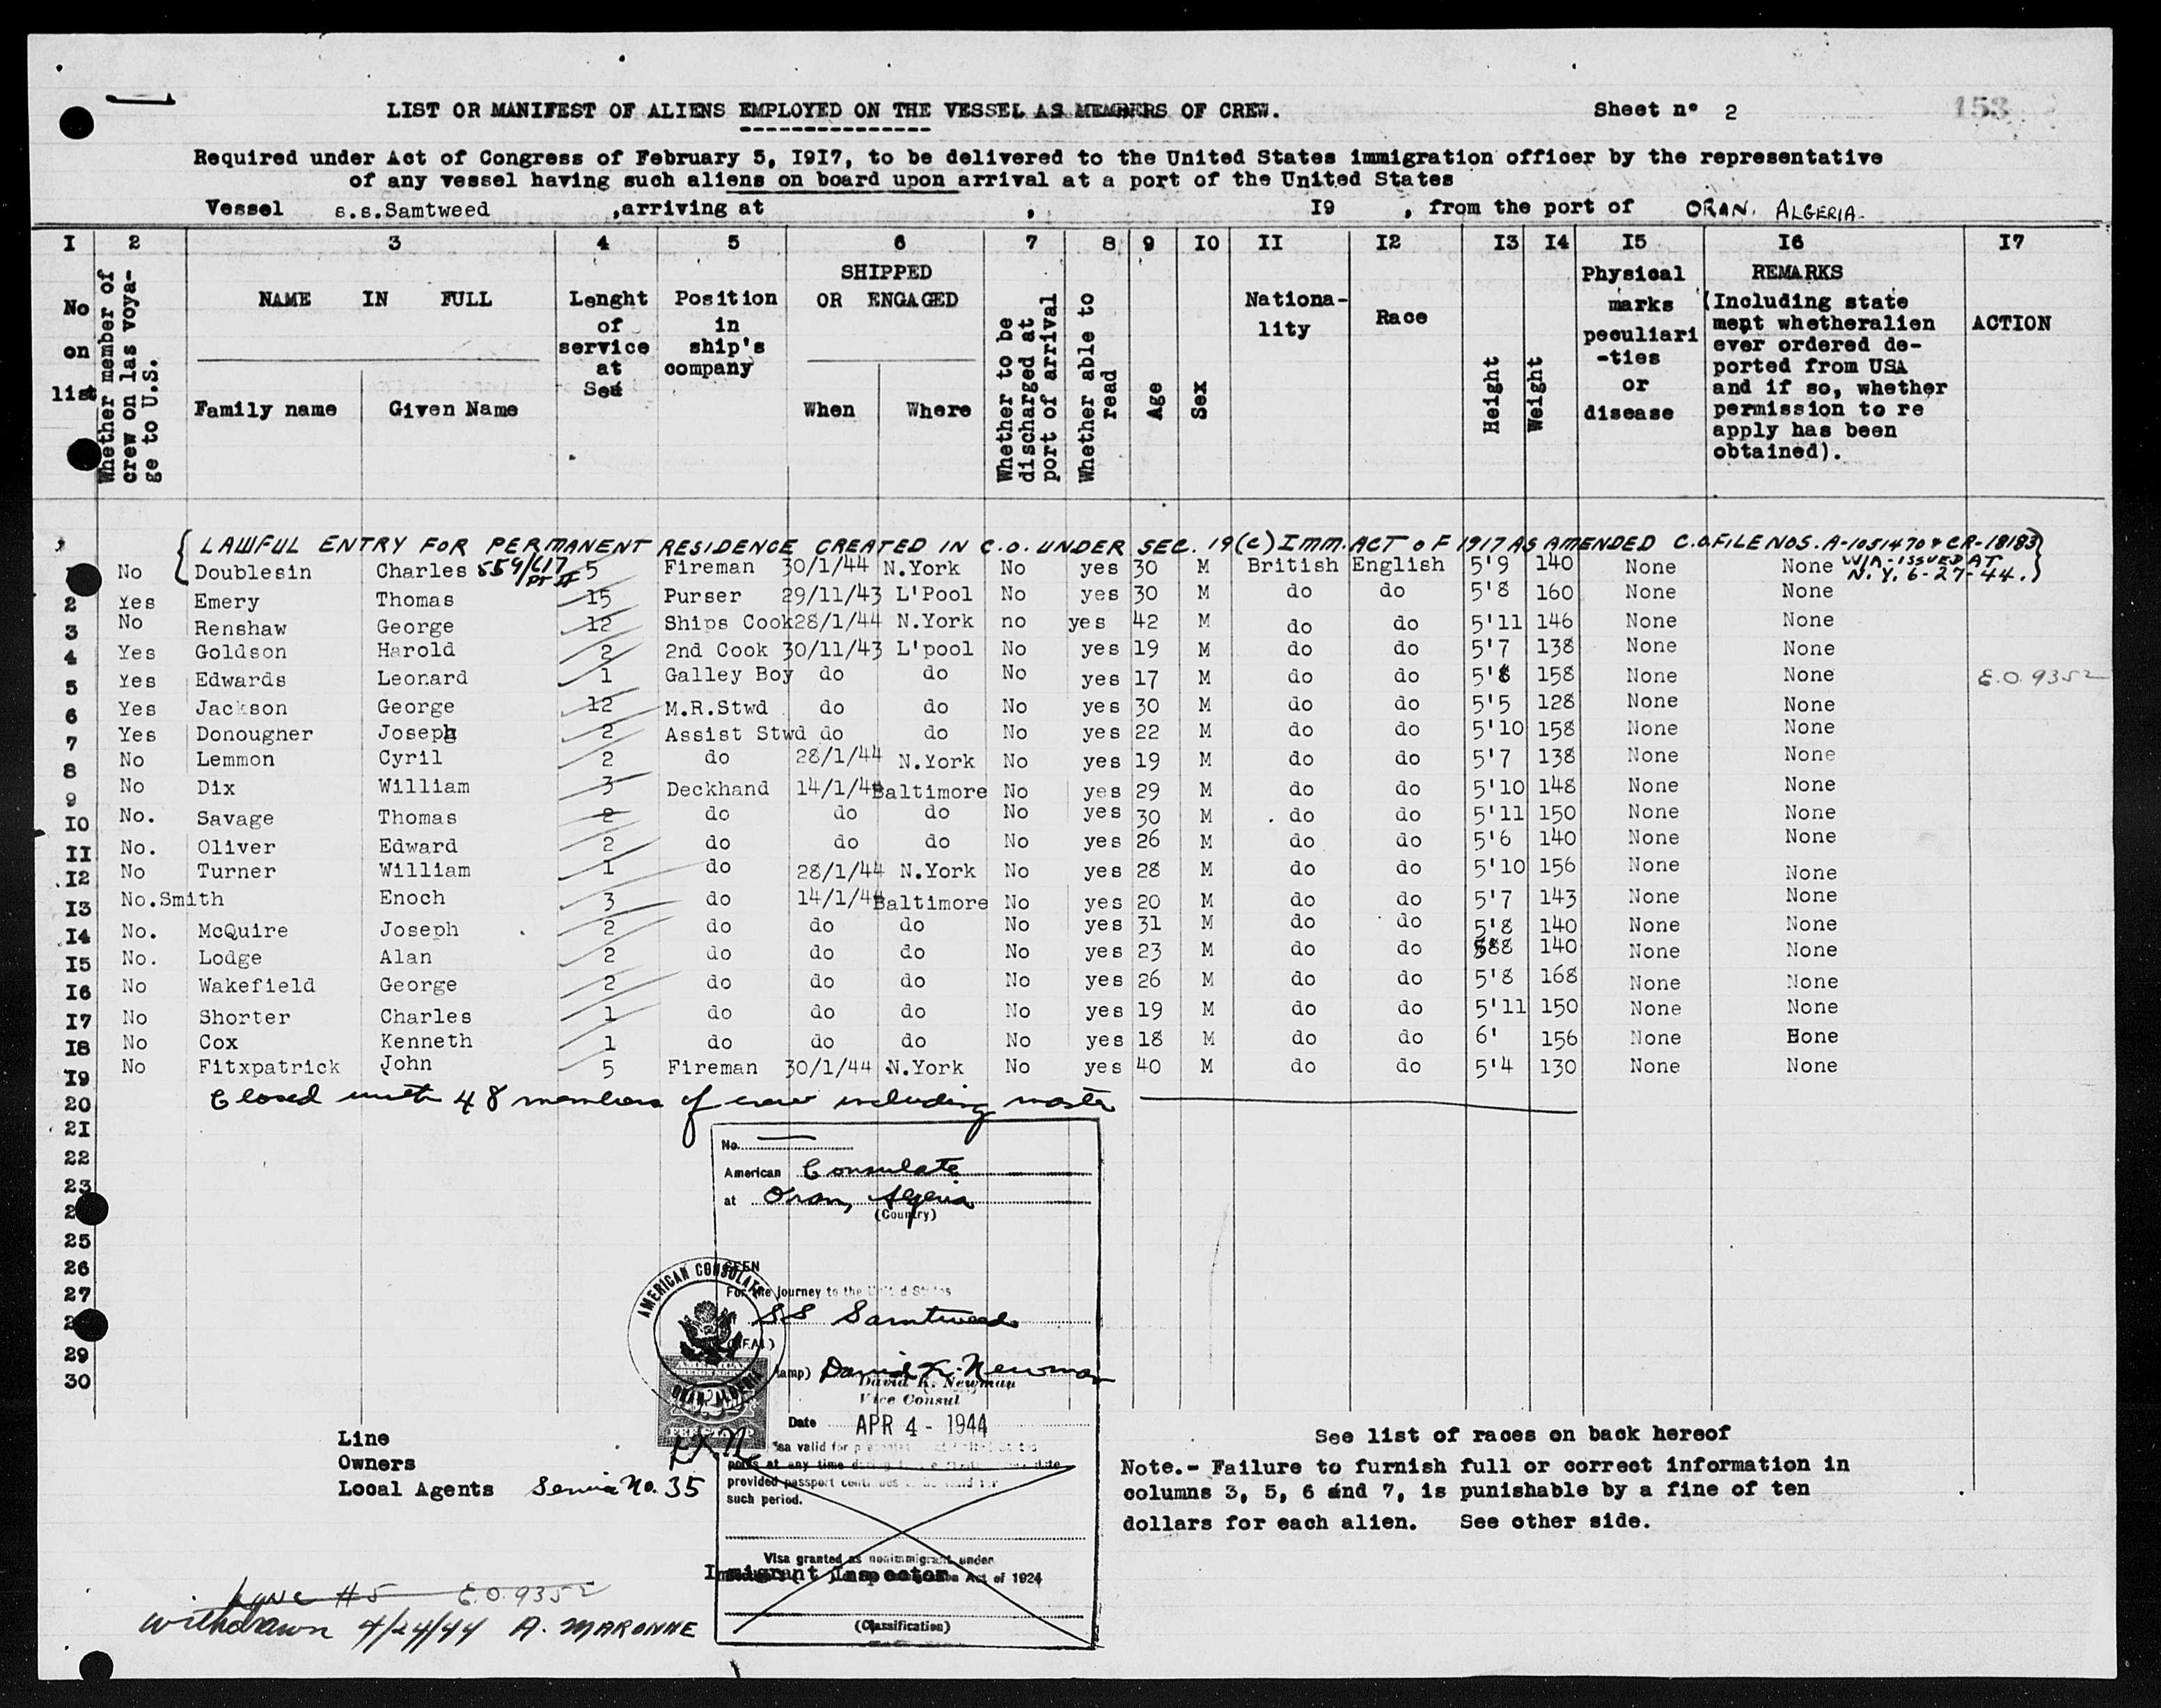 LIST OR MANIFEST OF ALIENS EMPLOYED ON THE VESSEL AS MEMBERS OF CREW. Sheet n° 2 153
Required under Act of Congress of February 5, I9I7, to be delivered to the United States immigration officer by the representative
of any vessel having such aliens on board upon arrival at a port of the United States
Vessel s.s.Samtweed ,arriving at , I9 , from the port of ORAN, ALGERIA.
I 2 3 4 5 6 7 8 9 IO II I2 I3 I4 I5 I6 I7
No on list
Whether member of crew on las voya-ge to U.S.
NAME IN FULL
Family name Given Name
Lenght of service at Sea
Position in ship's company
SHIPPED OR ENGAGED
When Where
Whether to be discharged at port of arrival
Whether able to read
Age
Sex
Nationa-lity
Race
Height
Weight
Physical marks peculiari-ties or disease
REMARKS (Including state ment whetheralien ever ordered de-ported from USA and if so, whether permission to re apply has been obtained).
ACTION
{LAWFUL ENTRY FOR PERMANENT RESIDENCE CREATED IN C.O. UNDER SEC. 19(c) IMM. ACT OF 1917 AS AMENDED C.O FILE NOS. A-1051470 & CR-18183}
No Doublesin Charles 559/617 PT II 5 Fireman 30/1/44 N.York No yes 30 M British English 5'9 140 None None W/A-ISSUED AT N.Y. 6-27-44.)
2 Yes Emery Thomas 15 Purser 29/11/43 L'Pool No yes 30 M do do 5'8 160 None None
3 No Renshaw George 12 Ships Cook 28/1/44 N.York no yes 42 M do do 5'11 146 None None
4 Yes Goldson Harold 2 2nd Cook 30/11/43 L'pool No yes 19 M do do 5'7 138 None None
5 Yes Edwards Leonard 1 Galley Boy do do No yes 17 M do do 5'8 158 None None E.O. 9352
6 Yes Jackson George 12 M.R.Stwd do do No yes 30 M do do 5'5 128 None None
7 Yes Donougner Joseph 2 Assist Stwd do do No yes 22 M do do 5'10 158 None None
8 No Lemmon Cyril 2 do 28/1/44 N.York No yes 19 M do do 5'7 138 None None
9 No Dix William 3 Deckhand 14/1/44 Baltimore No yes 29 M do do 5'10 148 None None
IO No. Savage Thomas 2 do do do No yes 30 M do do 5'11 150 None None
II No. Oliver Edward 2 do do do No yes 26 M do do 5'6 140 None None
I2 No Turner William 1 do 28/1/44 N.York No yes 28 M do do 5'10 156 None None
I3 No.Smith Enoch 3 do 14/1/44 Baltimore No yes 20 M do do 5'7 143 None None
I4 No. McQuire Joseph 2 do do do No yes 31 M do do 5'8 140 None None
I5 No. Lodge Alan 2 do do do No yes 23 M do do 588 140 None None
I6 No Wakefield George 2 do do do No yes 26 M do do 5'8 168 None None
I7 No Shorter Charles 1 do do do No yes 19 M do do 5'11 150 None None
I8 No Cox Kenneth 1 do do do No yes 18 M do do 6' 156 None Hone
I9 No Fitxpatrick John 5 Fireman 30/1/44 N.York No yes 40 M do do 5'4 130 None None
20 Closed with 48 members of crew including master
21
22
23
25
26
27
29
30
No.
American Consulate
at Oran, Algeria
(Country)
SEEN
For the journey to the United States
SS Samtweed
(SEAL)
AMERICAN CONSULATE
ORAN, ALGERIA
David K. Newman
David K. Newman
Vice Consul
Date APR 4 - 1944
provided passport continues to be valid for
such period.
Visa granted as nonimmigrant under
Immigrant Inspector
Act of 1924
(Classification)
Line
Owners
Local Agents Service No. 35
See list of races on back hereof
Note.- Failure to furnish full or correct information in
columns 3, 5, 6 and 7, is punishable by a fine of ten
dollars for each alien. See other side.
Line #5 E.O. 9352
Withdrawn 4/24/44 A. MARONNE